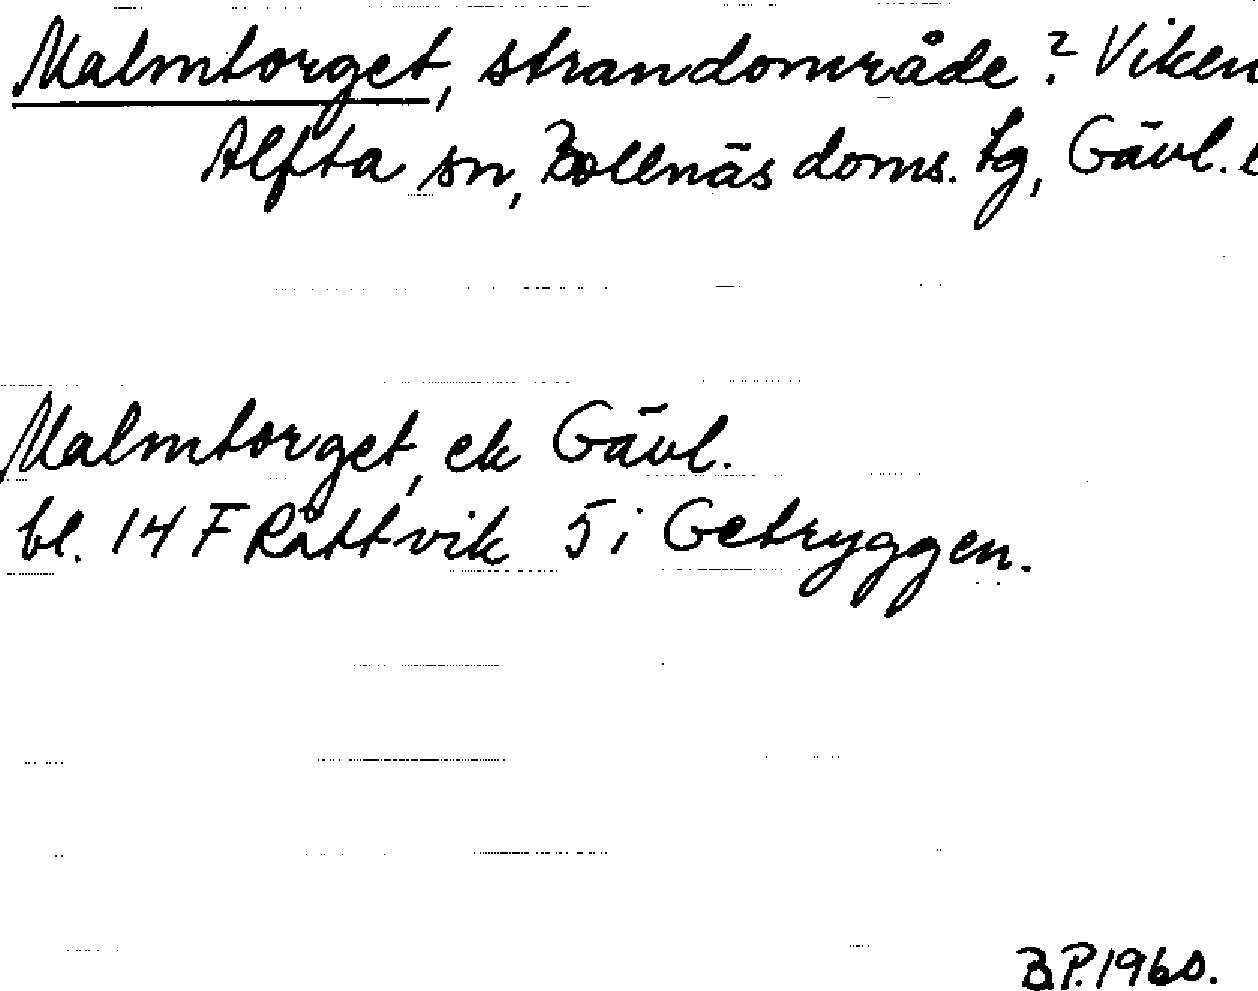 Malmtorget, strandområde? Viken
Alfta sn, Bollnäs doms. tg, Gävl. l
Malmtorget, ek Gävl.
bl. 14 F Rättvik 5 i Getryggen.
B.P. 1960.